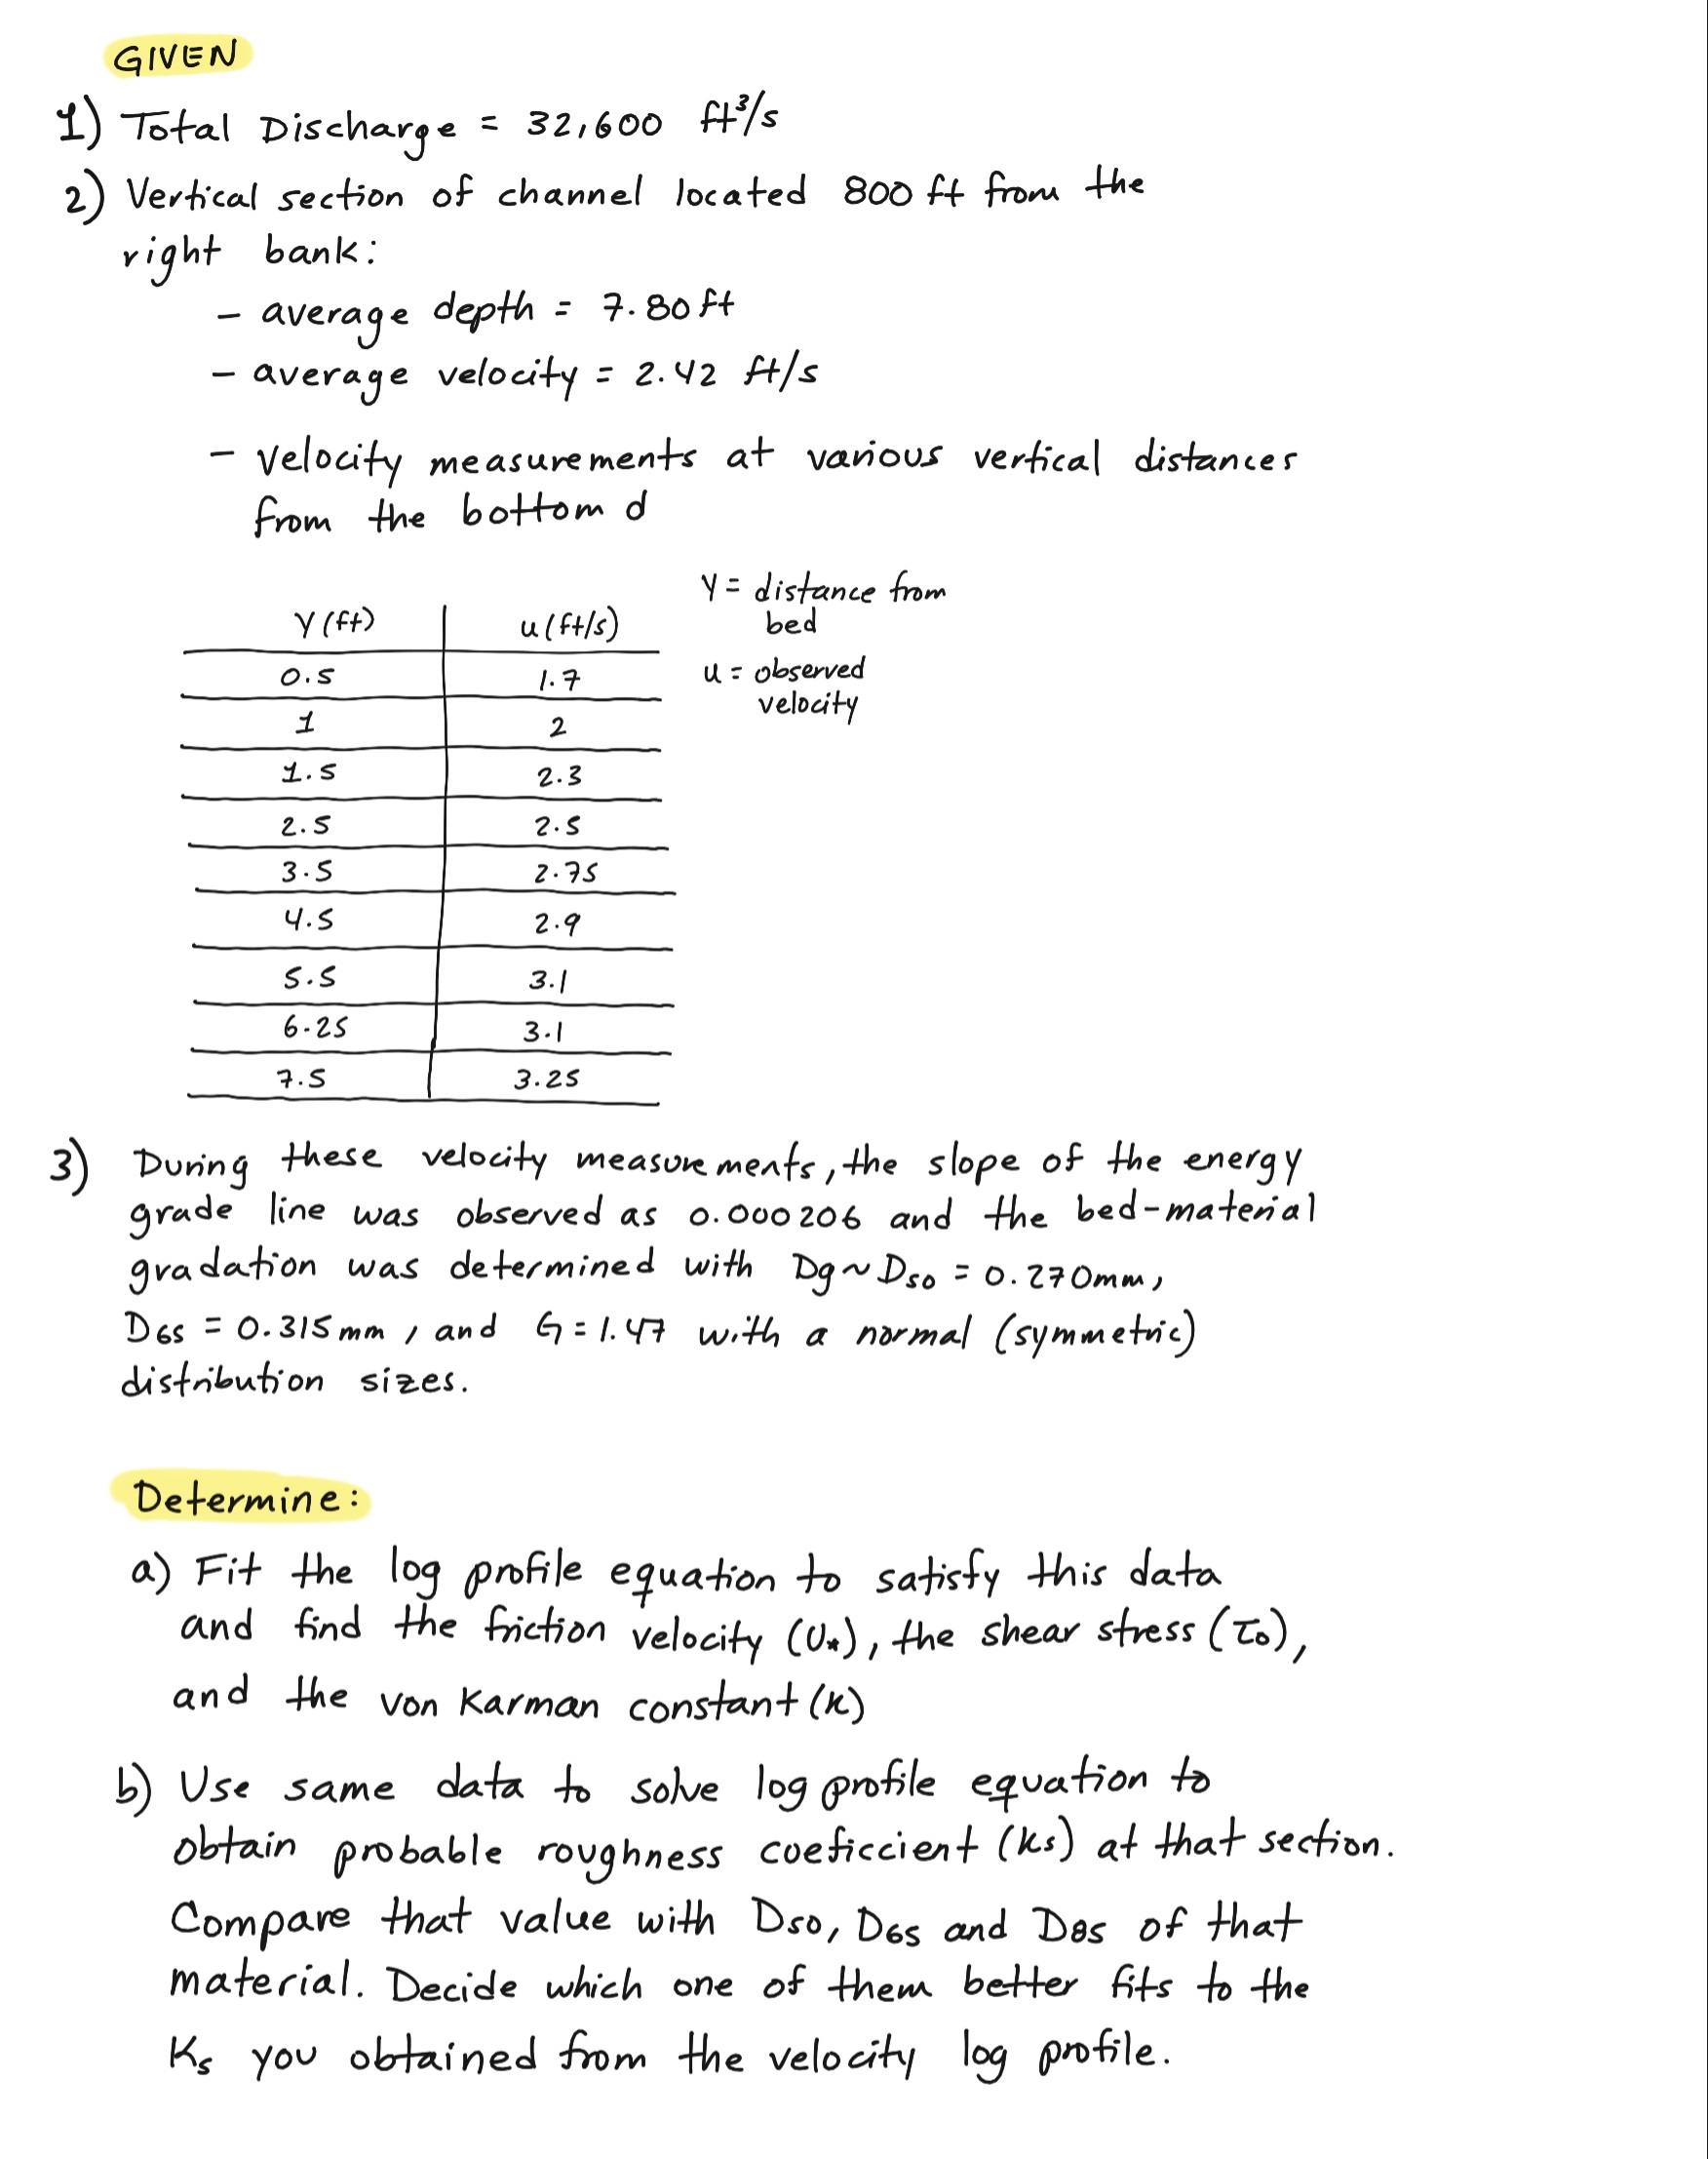 GIVEN
1) Total Discharge = 32,600 ft³/s
2) Vertical section of channel located 800 ft from the
right bank:
- average depth = 7.80 ft
- average velocity = 2.42 ft/s
- velocity measurements at various vertical distances
from the bottom d
y = distance from
bed
y (ft) u (ft/s)
u = observed
velocity
0.5 1.7
1 2
1.5 2.3
2.5 2.5
3.5 2.75
4.5 2.9
5.5 3.1
6.25 3.1
7.5 3.25
3) During these velocity measurements, the slope of the energy
grade line was observed as 0.000206 and the bed-material
gradation was determined with Dg ~ D50 = 0.270mm,
D65 = 0.315mm, and G = 1.47 with a normal (symmetric)
distribution sizes.
Determine:
a) Fit the log profile equation to satisfy this data
and find the friction velocity (U*), the shear stress (τ0),
and the von Karman constant (κ)
b) Use same data to solve log profile equation to
obtain probable roughness coeficcient (ks) at that section.
Compare that value with D50, D65 and D85 of that
material. Decide which one of them better fits to the
Ks you obtained from the velocity log profile.